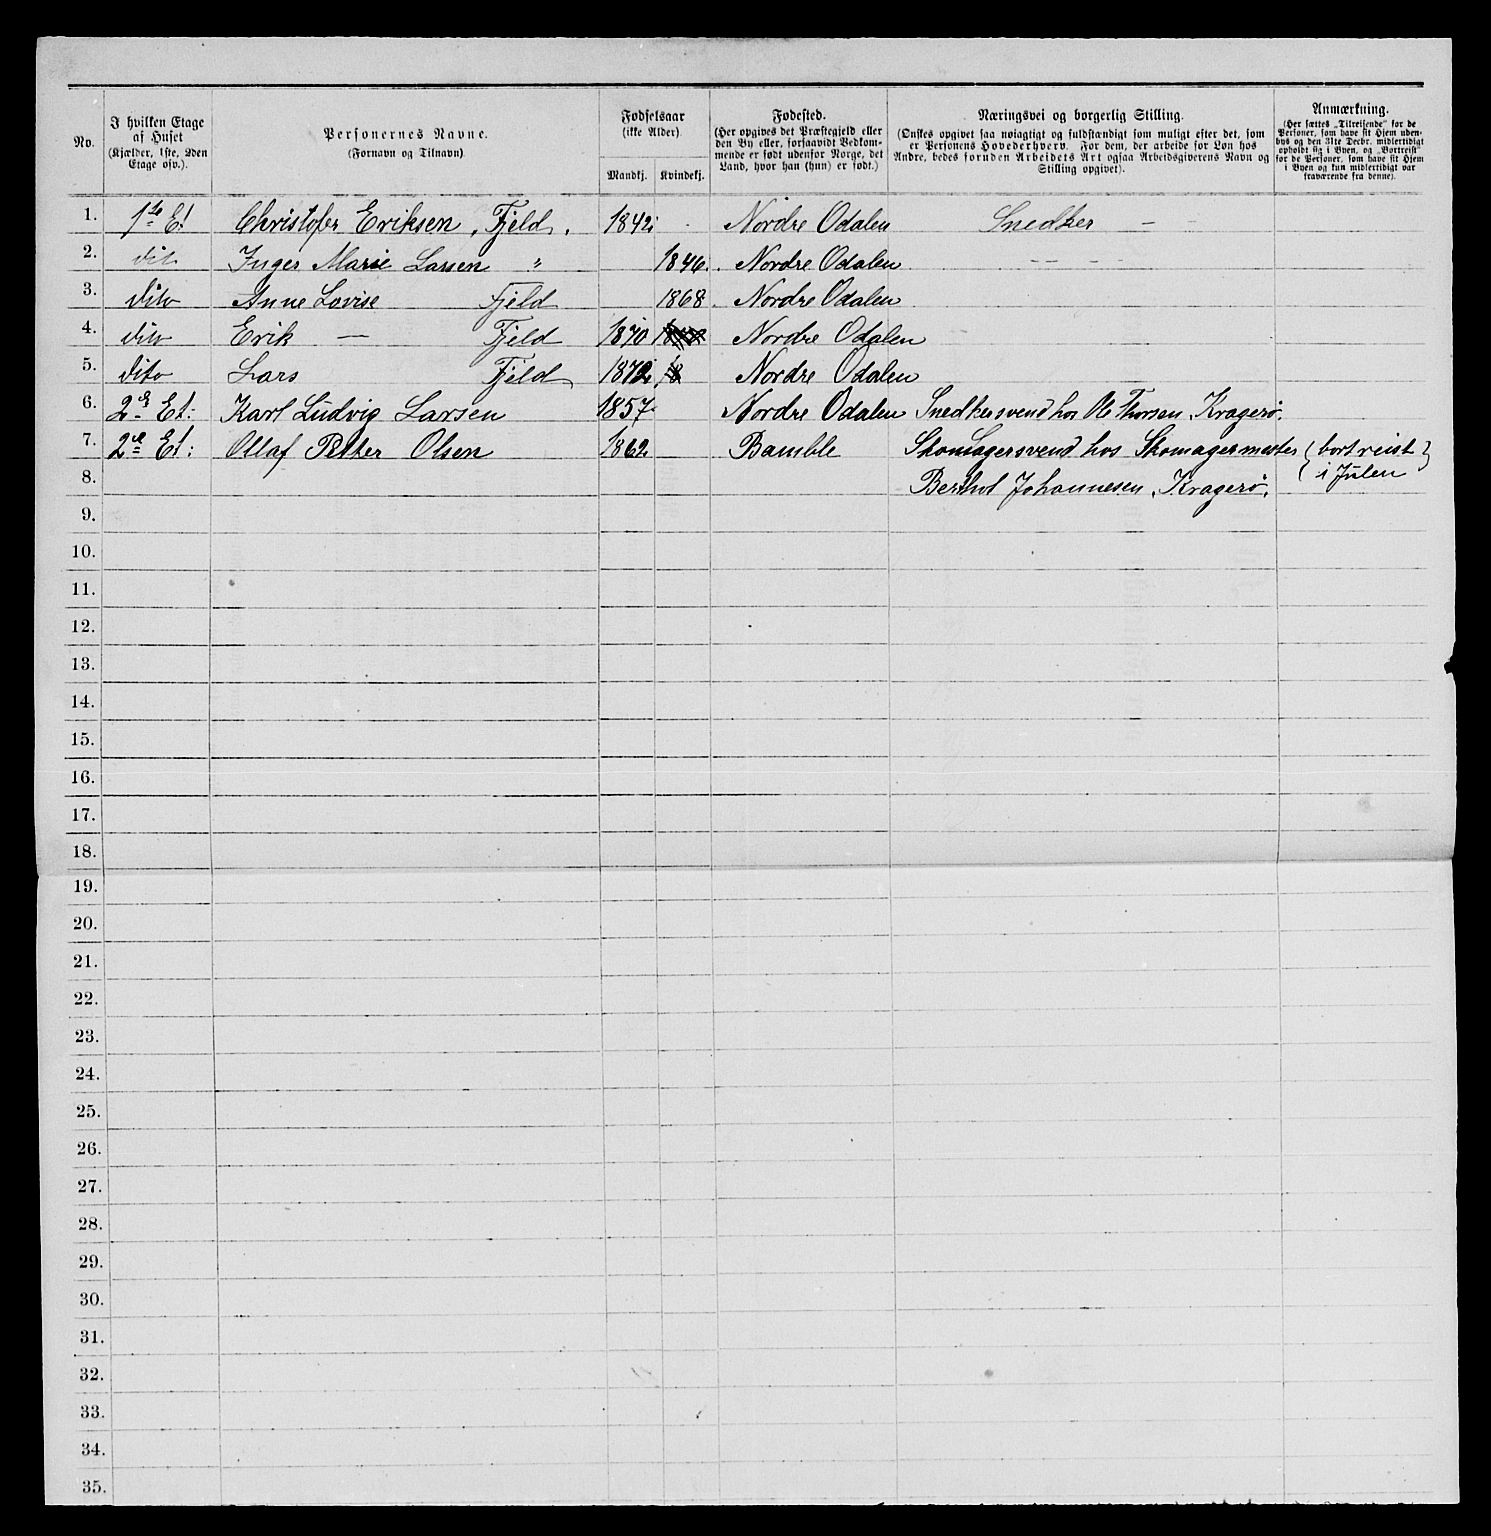 No.
I hvilken Etage af Huset (Kjælder, 1ste, 2den Etage osv.).
Personernes Navne. (Fornavn og Tilnavn)
Fødselsaar (ikke Alder).
Mandkj.
Kvindekj.
Fødested. (Her opgives det Præstegjeld eller den By eller, forsaavidt Vedkommende er født udenfor Norge, det Land, hvor han (hun) er født.)
Næringsvei og borgerlig Stilling. (Ønskes opgivet saa nøiagtigt og fuldstændigt som muligt efter det, som er Personens Hovederhverv. For dem, der arbeide for Løn hos Andre, bedes foruden Arbeidets Art ogsaa Arbeidsgiverens Navn og Stilling opgivet).
Anmærkning. (Her sættes „Tilreisende" for de Personer, som have sit Hjem udenbys og den 31te Decbr. midlertidigt opholdt sig i Byen, og „Bortreist" for de Personer, som have sit Hjem i Byen og kun midlertidigt var fraværende fra denne).
1. 1ste Et Christofer Eriksen, Fjeld. 1842 Nordre Odalen Snedker —
2. dit Inger Marie Larsen " 1846. Nordre Odalen - - - -
3. dito Anne Lovise Fjeld 1868. Nordre Odalen
4. dito Erik — Fjeld 1870 Nordre Odalen
5. dito Lars Fjeld 1872 18 Nordre Odalen
6. 2den Et: Karl Ludvig Larsen 1857 Nordre Odalen Snedkersvend hos Kragerø.
7. 2den Et: Ollaf Petter Olsen 1862 Bamble Skomagersvend hos Skomagermester (bortreist)
8. Berthol Johannesen, Kragerø. ( i Julen
9.
10.
11.
12.
13.
14.
15.
16.
17.
18.
19.
20.
21.
22.
23.
24.
25.
26.
27.
28.
29.
30.
31.
32.
33.
34.
35.